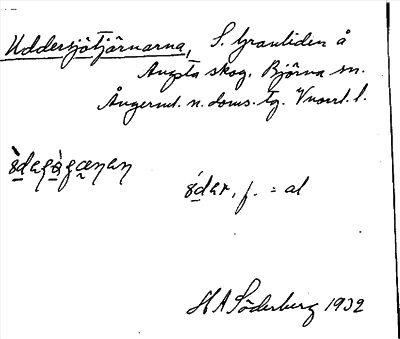 Uddersjötjärnarna, S. Granliden å
Angsta skog. Björna sn.
Ångerml. n. doms. tg. Vnorrl. l.
f. = al
H A Söderberg 1932